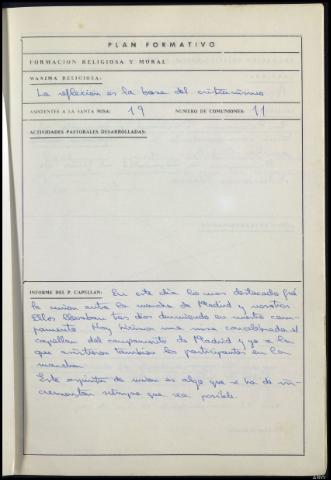 PLAN FORMATIVO
FORMACION RELIGIOSA Y MORAL
MAXIMA RELIGIOSA:
La reflexion es la base del cristianismo
ASISTENTES A LA SANTA MISA: 19 NUMERO DE COMUNIONES: 11
ACTIVIDADES PASTORALES DESARROLLADAS:
INFORME DEL P. CAPELLAN: En este día lo mas destacado fué
la union entre la marcha de Madrid y nosotros
Ellos llevaban tres dias durmiendo en nuestro cam-
pamento. Hoy hicimos una misa concelebrada el
capellan del campamento de Madrid y yo a la
que asistieron tambien los participantes en la
marcha.
Este espiritu de union es algo que se ha de in-
crementar siempre que sea posible.